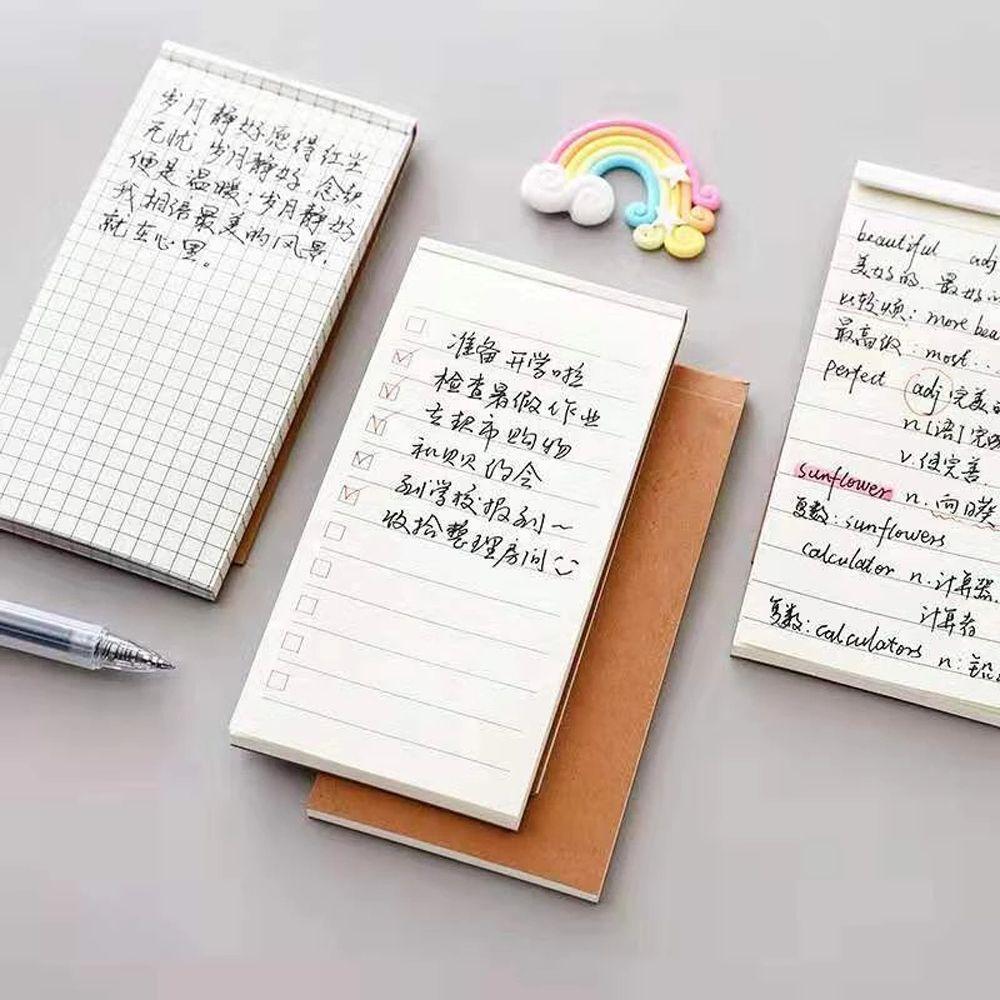 岁月静好愿得红尘
无忧,岁月静好,念起
便是温暖;岁月静好
我相信最美的风景,
就在心里。
准备开学啦
检查暑假作业
去超市购物
和贝贝约会
到学校报到~
收拾整理房间
beautiful adj
美好的.最好
比较级: more bea
最高级: most...
perfect adj 完美的
n [语] 完
v. 使完善.
sunflower n. 向日葵
复数: sunflowers
calculator n. 计算器.
计算者
复数: calculators n: